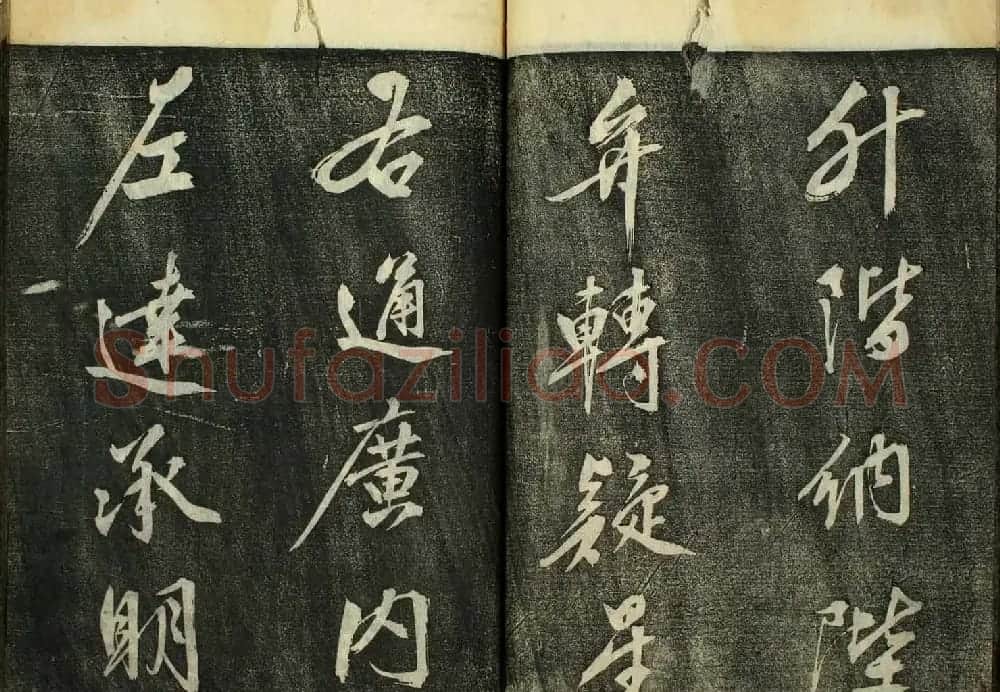 升階納陛
弁轉疑星
右通廣内
左達承明
Shufaziliao.COM